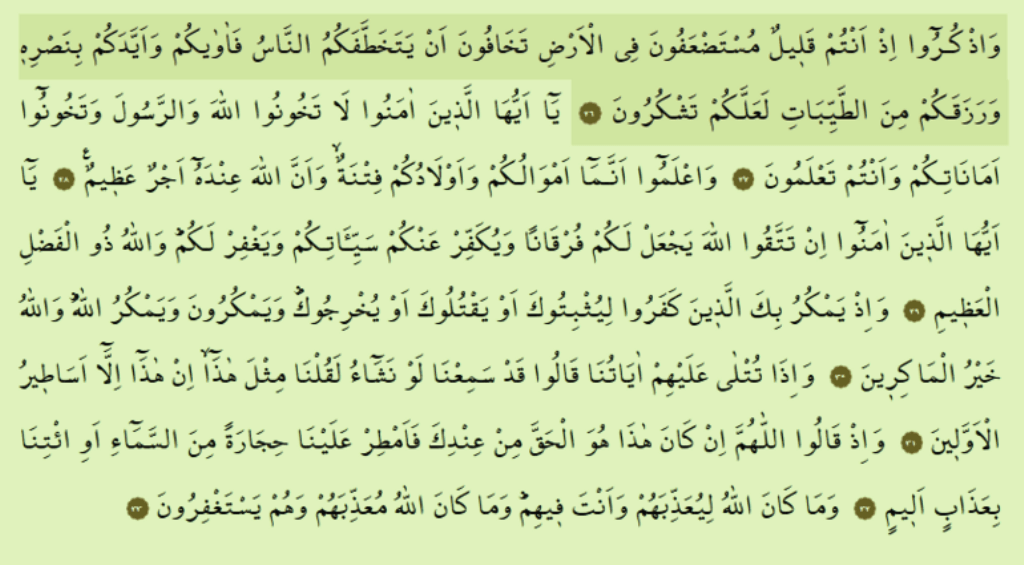 وَاذْكُرُٓوا اِذْ اَنْتُمْ قَل۪يلٌ مُسْتَضْعَفُونَ فِي الْاَرْضِ تَخَافُونَ اَنْ يَتَخَطَّفَكُمُ النَّاسُ فَاٰوٰيكُمْ وَاَيَّدَكُمْ بِنَصْرِه۪
وَرَزَقَكُمْ مِنَ الطَّيِّبَاتِ لَعَلَّكُمْ تَشْكُرُونَ ﴿٢٦﴾ يَٓا اَيُّهَا الَّذ۪ينَ اٰمَنُوا لَا تَخُونُوا اللّٰهَ وَالرَّسُولَ وَتَخُونُٓوا
اَمَانَاتِكُمْ وَاَنْتُمْ تَعْلَمُونَ ﴿٢٧﴾ وَاعْلَمُٓوا اَنَّمَٓا اَمْوَالُكُمْ وَاَوْلَادُكُمْ فِتْنَةٌۙ وَاَنَّ اللّٰهَ عِنْدَهُٓ اَجْرٌ عَظ۪يمٌ۟ ﴿٢٨﴾ يَٓا
اَيُّهَا الَّذ۪ينَ اٰمَنُٓوا اِنْ تَتَّقُوا اللّٰهَ يَجْعَلْ لَكُمْ فُرْقَانًا وَيُكَفِّرْ عَنْكُمْ سَيِّـَٔاتِكُمْ وَيَغْفِرْ لَكُمْۜ وَاللّٰهُ ذُو الْفَضْلِ
الْعَظ۪يمِ ﴿٢٩﴾ وَاِذْ يَمْكُرُ بِكَ الَّذ۪ينَ كَفَرُوا لِيُثْبِتُوكَ اَوْ يَقْتُلُوكَ اَوْ يُخْرِجُوكَۜ وَيَمْكُرُونَ وَيَمْكُرُ اللّٰهُۜ وَاللّٰهُ
خَيْرُ الْمَاكِر۪ينَ ﴿٣٠﴾ وَاِذَا تُتْلٰى عَلَيْهِمْ اٰيَاتُنَا قَالُوا قَدْ سَمِعْنَا لَوْ نَشَٓاءُ لَقُلْنَا مِثْلَ هٰذَٓاۙ اِنْ هٰذَٓا اِلَّٓا اَسَاط۪يرُ
الْاَوَّل۪ينَ ﴿٣١﴾ وَاِذْ قَالُوا اللّٰهُمَّ اِنْ كَانَ هٰذَا هُوَ الْحَقَّ مِنْ عِنْدِكَ فَاَمْطِرْ عَلَيْنَا حِجَارَةً مِنَ السَّمَٓاءِ اَوِ ائْتِنَا
بِعَذَابٍ اَل۪يمٍ ﴿٣٢﴾ وَمَا كَانَ اللّٰهُ لِيُعَذِّبَهُمْ وَاَنْتَ ف۪يهِمْۜ وَمَا كَانَ اللّٰهُ مُعَذِّبَهُمْ وَهُمْ يَسْتَغْفِرُونَ ﴿٣٣﴾